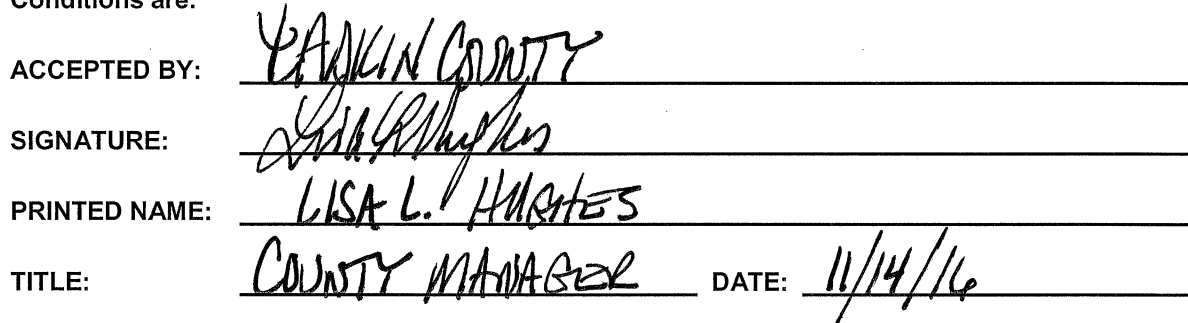 Conditions are:
ACCEPTED BY: YADKIN COUNTY
SIGNATURE: Lisa L Hughes
PRINTED NAME: LISA L. HUGHES
TITLE: COUNTY MANAGER DATE: 11/14/16